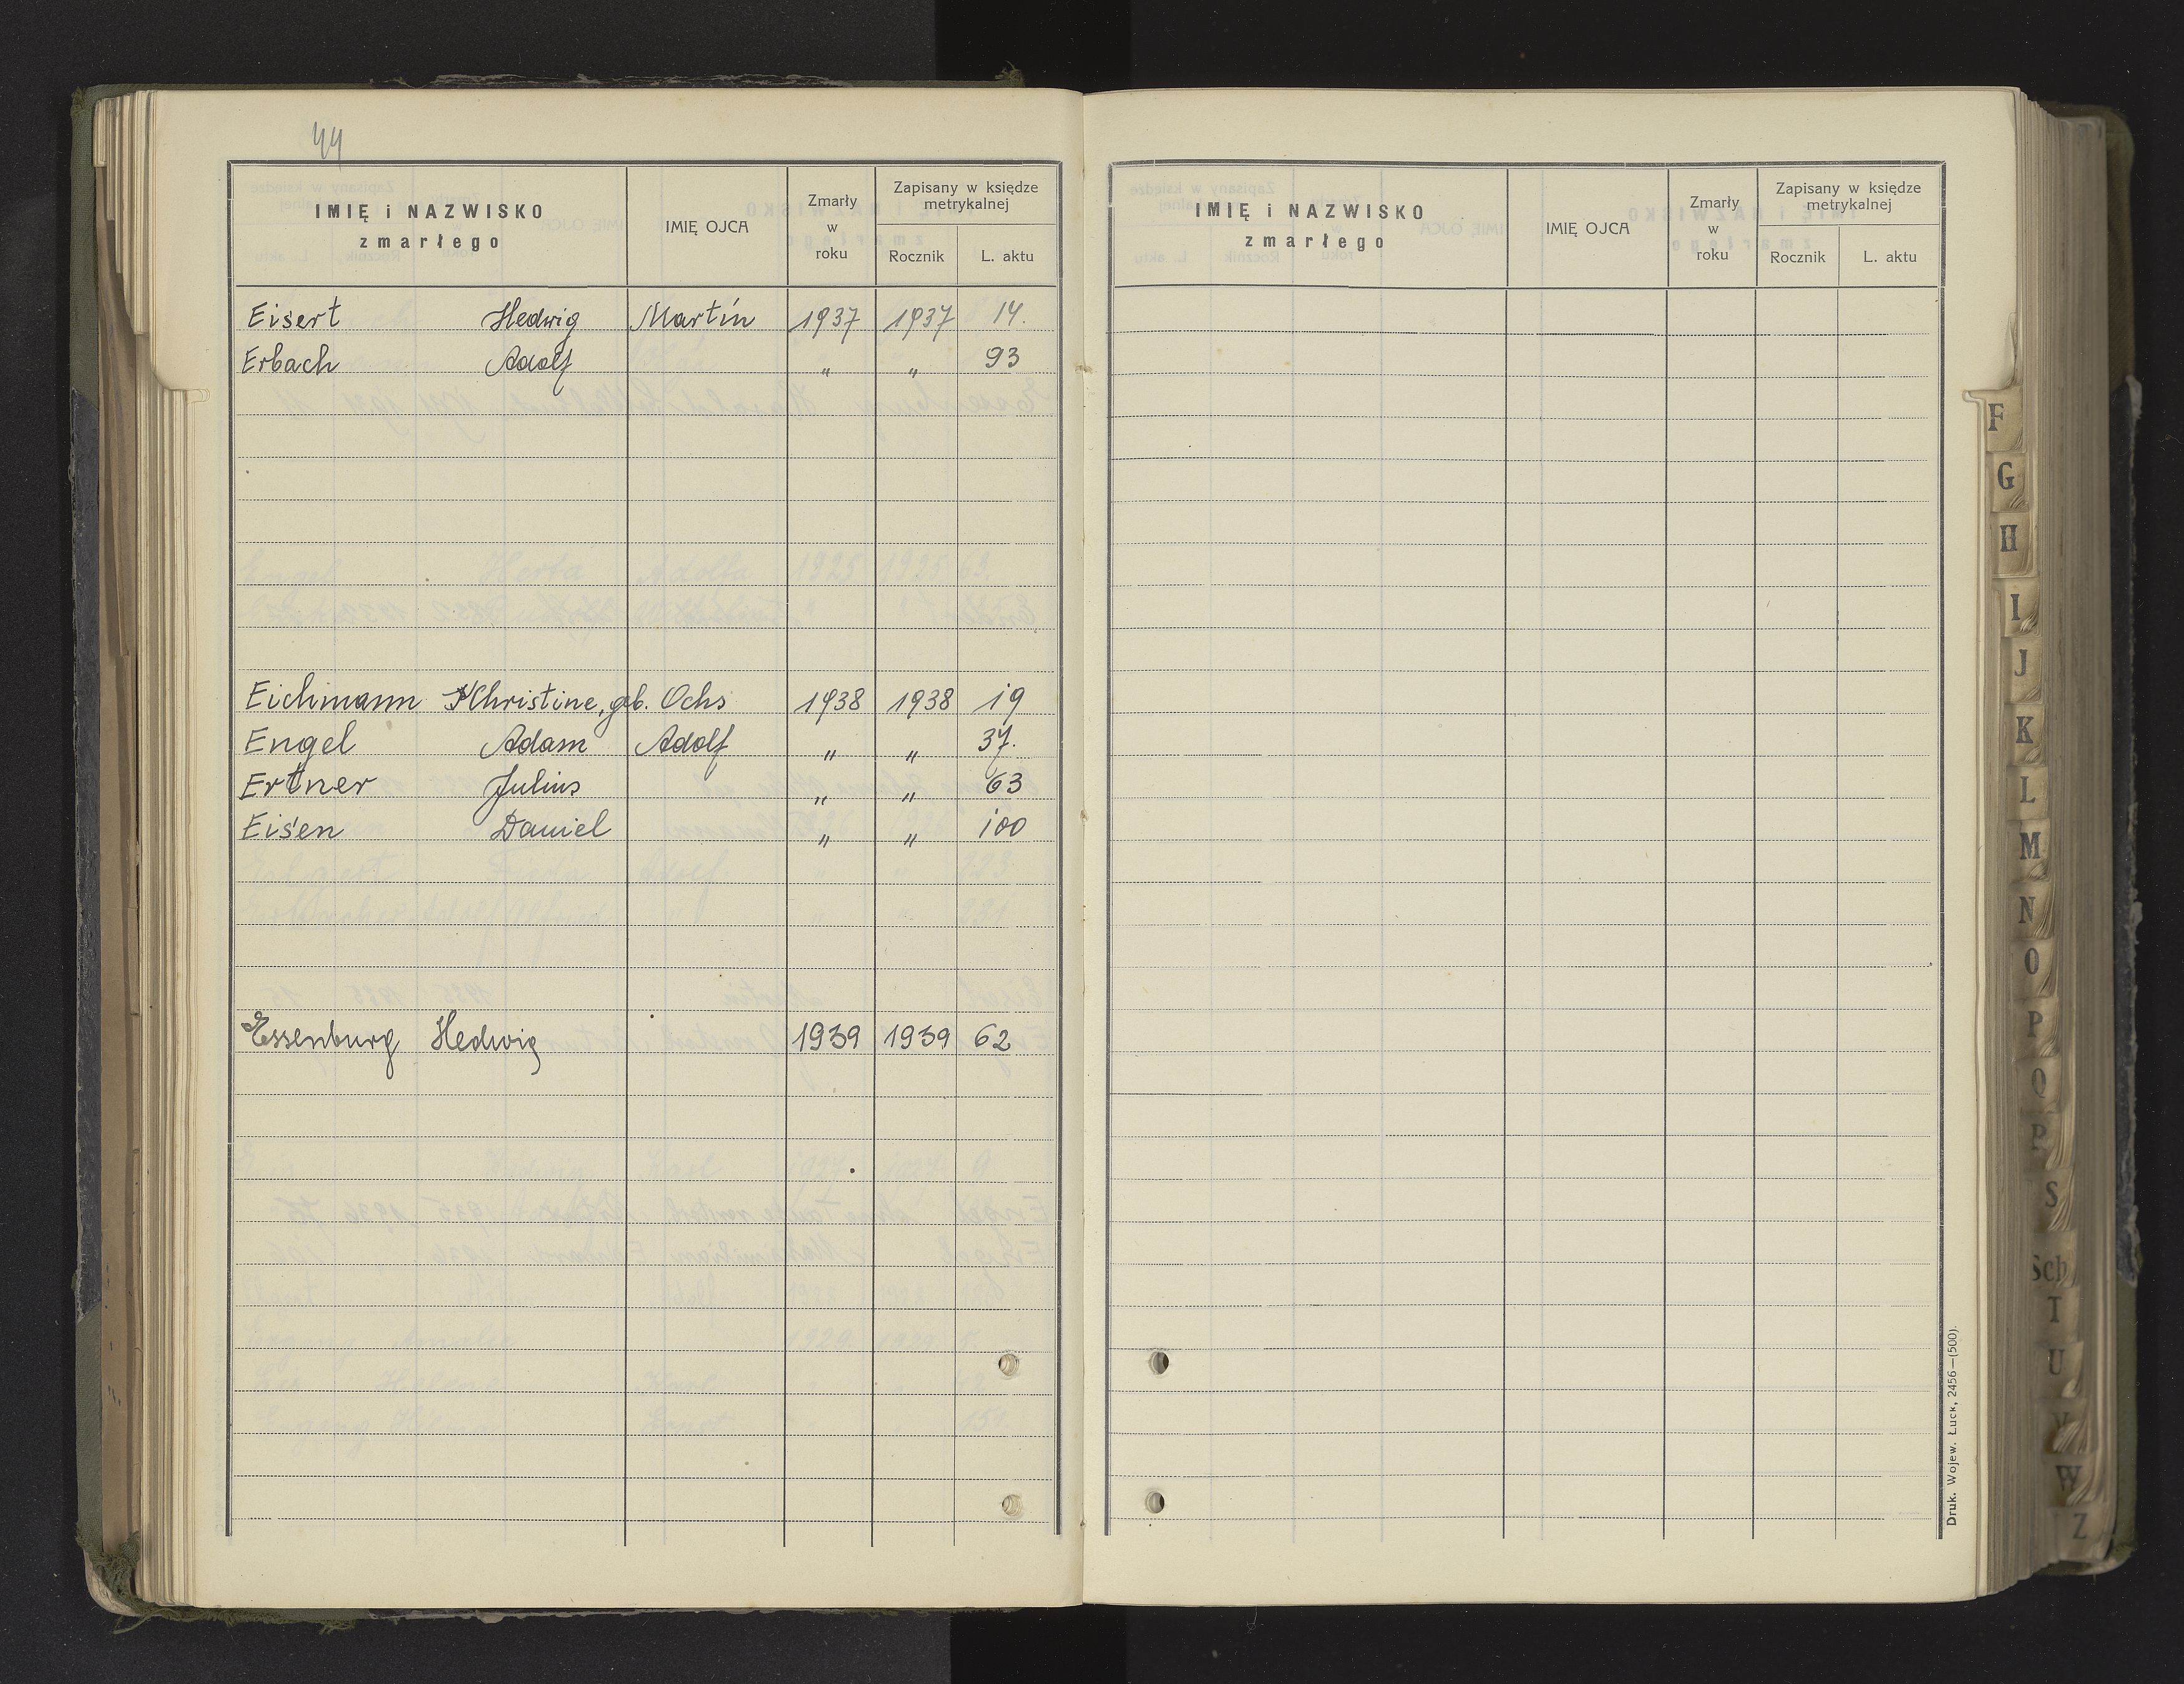 44
IMIĘ i NAZWISKO
zmarłego
IMIĘ OJCA
Zmarły
w
roku
Zapisany w księdze
metrykalnej
Rocznik
L. aktu
Eisert Hedwig Martin 1937 1937 14.
Erbach Adolf " " 93
Eichmann Christine, geb. Ochs 1938 1938 19
Engel Adam Adolf " " 37.
Ertner Julius " " 63
Eisen Daniel " " 100
Essenburg Hedwig 1939 1939 62
IMIĘ i NAZWISKO
zmarłego
IMIĘ OJCA
Zmarły
w
roku
Zapisany w księdze
metrykalnej
Rocznik
L. aktu
Druk. Wojew. Łuck, 2456—(500).
F
G
H
I
J
K
L
M
N
O
P
Q
S
Sch
T
U
V
W
Z